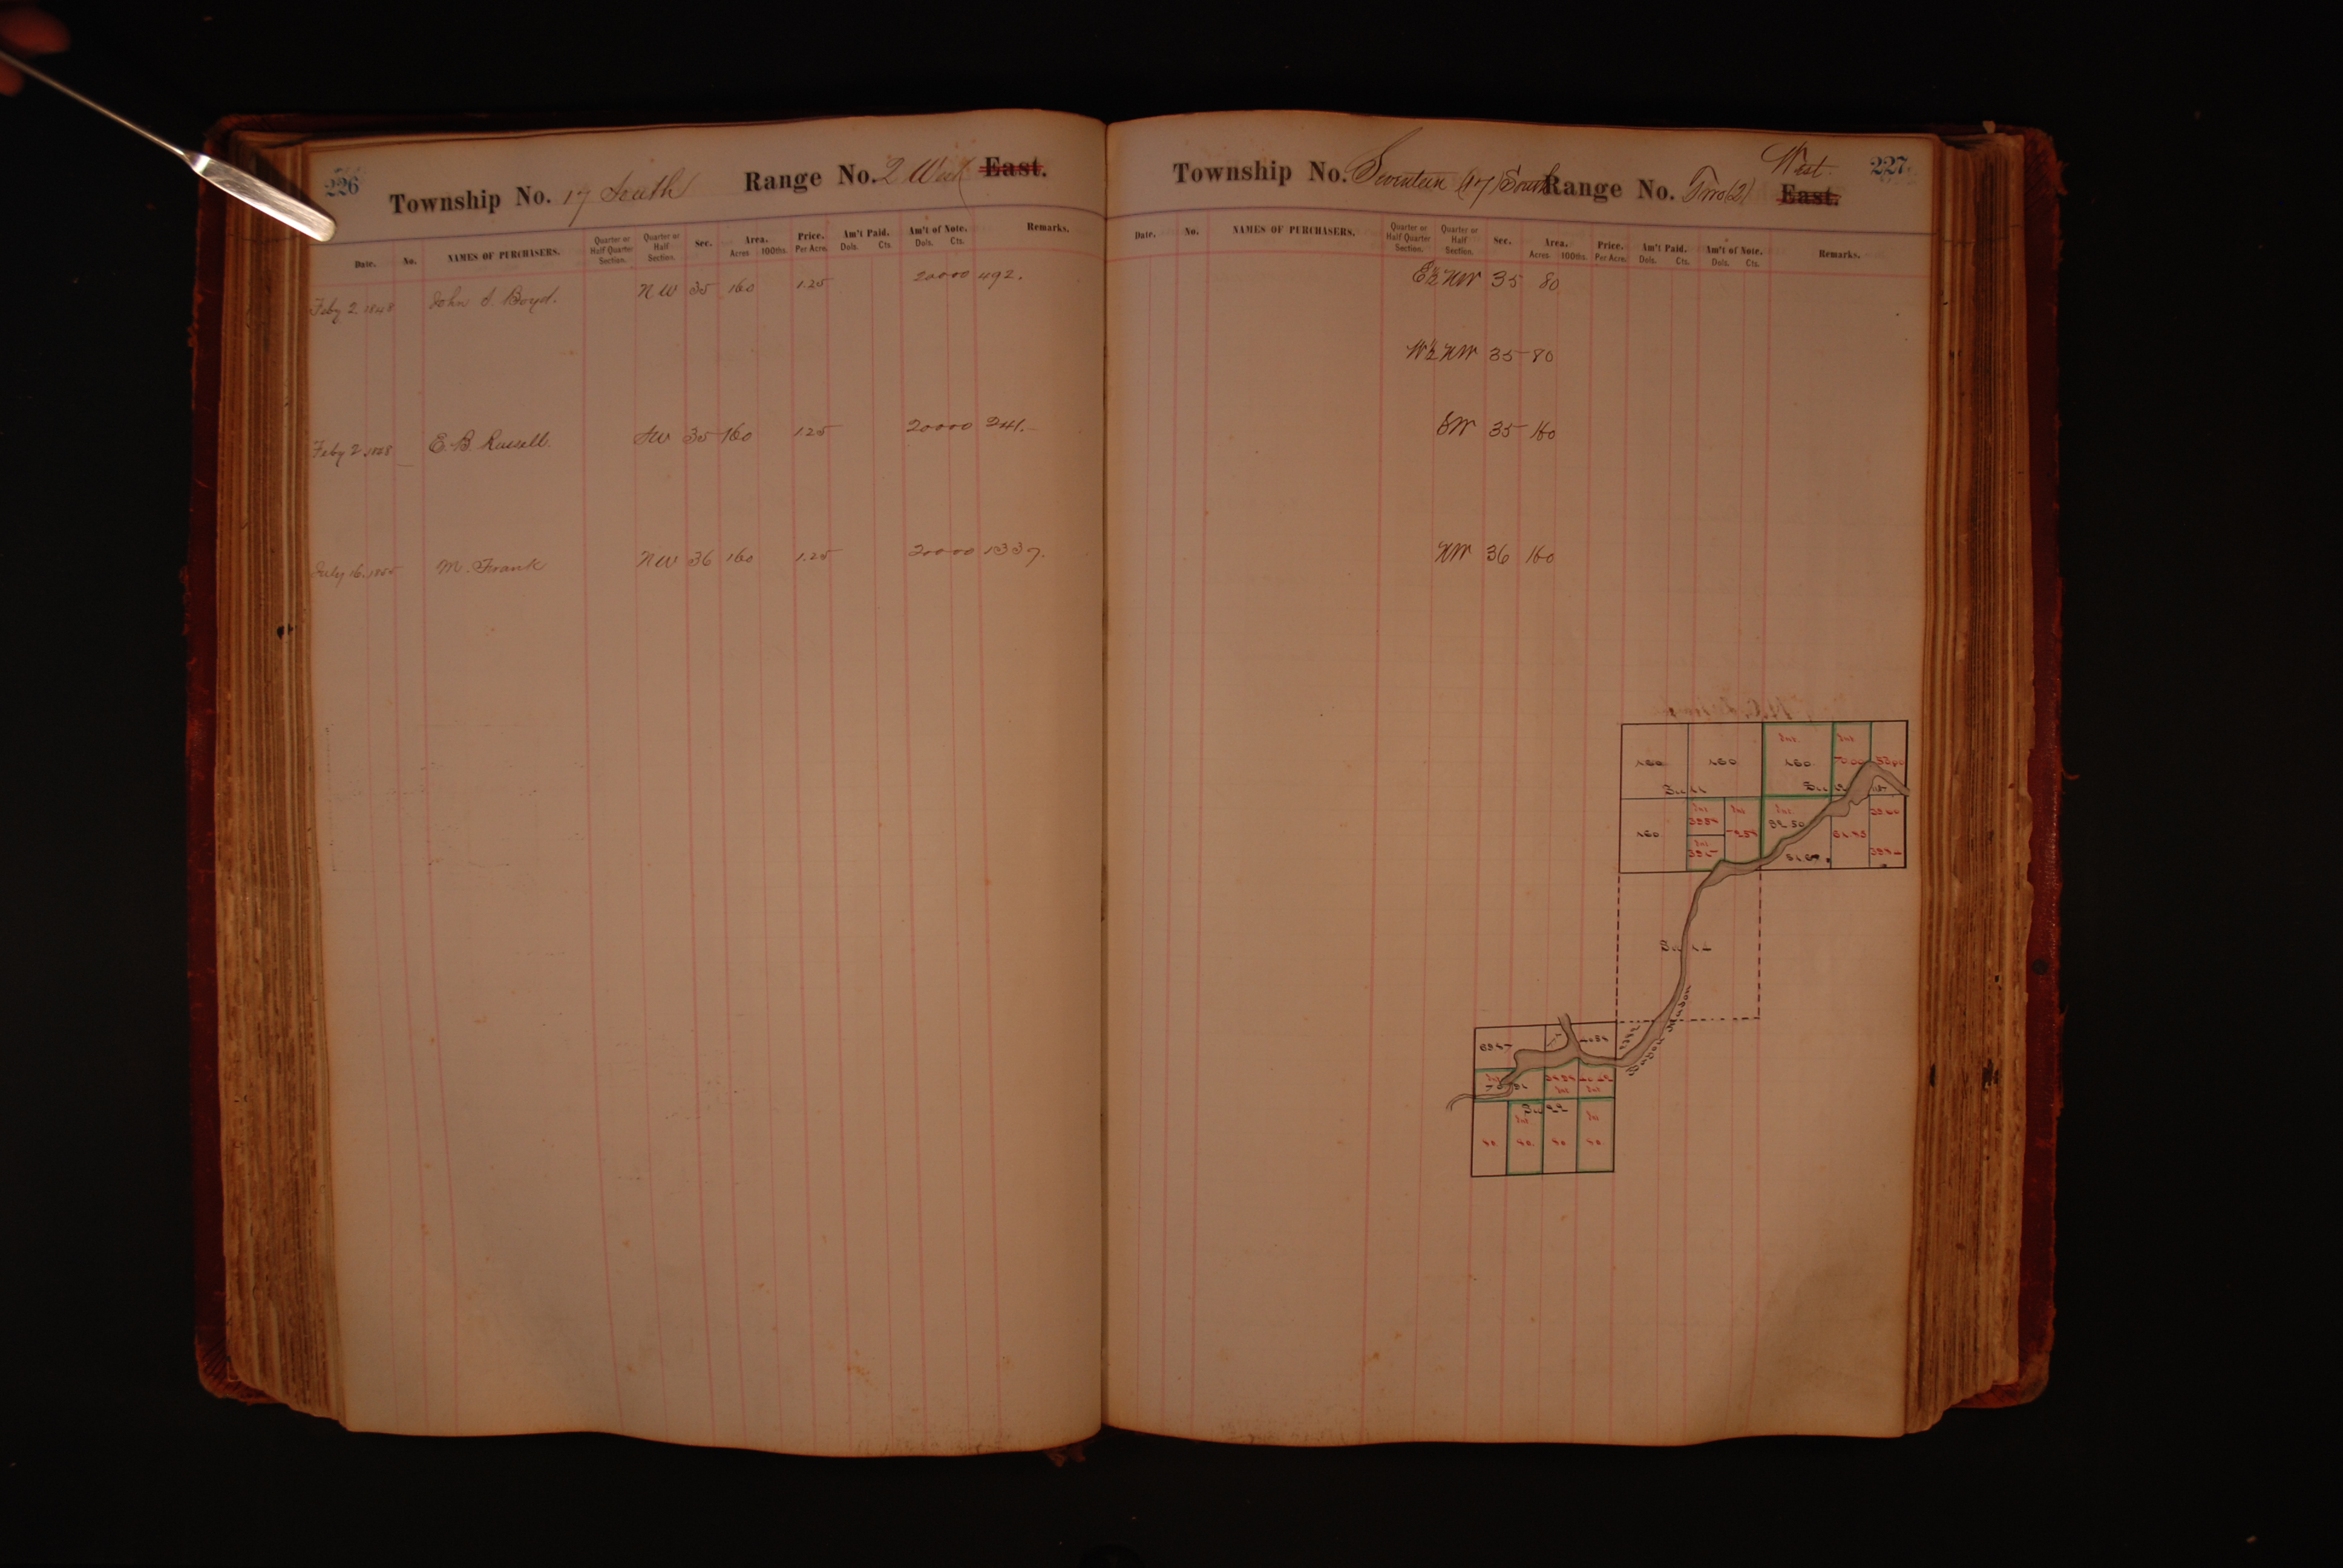 226
Township No. 17 South Range No. 2 West East.
Date. No. NAMES OF PURCHASERS. Quarter or Half Quarter Section. Quarter or Half Section. Sec. Area. Acres 100ths. Price. Per Acre. Am't Paid. Dols. Cts. Am't of Note. Dols. Cts. Remarks.
Feby 2. 1848 John Boyd. NW 35 160 1.25 200 00 492.
Feby 2. E. B. Russell. SW 35 160 1.25 200 00 241.
July 16. 1855 M. Frank NW 36 160 1.25 200 00 1337.
227
Township No. Seventeen (17) South Range No. Two (2) West. East.
Date. No. NAMES OF PURCHASERS. Quarter or Half Quarter Section. Quarter or Half Section. Sec. Area. Acres 100ths. Price. Per Acre. Am't Paid. Dols. Cts. Am't of Note. Dols. Cts. Remarks.
E½ NW 35 80
W½ NW 35 80
SW 35 160
NW 36 160
160 160 160
160
Bayou
40. 40. 40. 40.